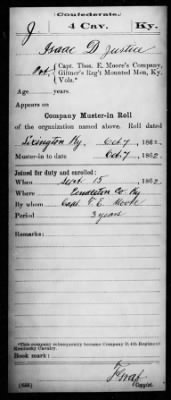 Confederate.
J 4 Cav. Ky.
Isaac D Justice
Pvt., Capt. Thos. E. Moore's Company,
Giltner's Reg't Mounted Men, Ky.
Vols.*
Age years.
Appears on
Company Muster-in Roll
of the organization named above. Roll dated
Lexington Ky, Oct 7, 1862
Muster-in to date Oct 7, 1862
Joined for duty and enrolled:
When Sept 15, 1862
Where Pendleton Co Ky
By whom Capt. T. E. Moore
Period 3 years
Remarks:
*This company subsequently became Company 4th Regiment
Kentucky Cavalry.
Book mark:
Copyist.